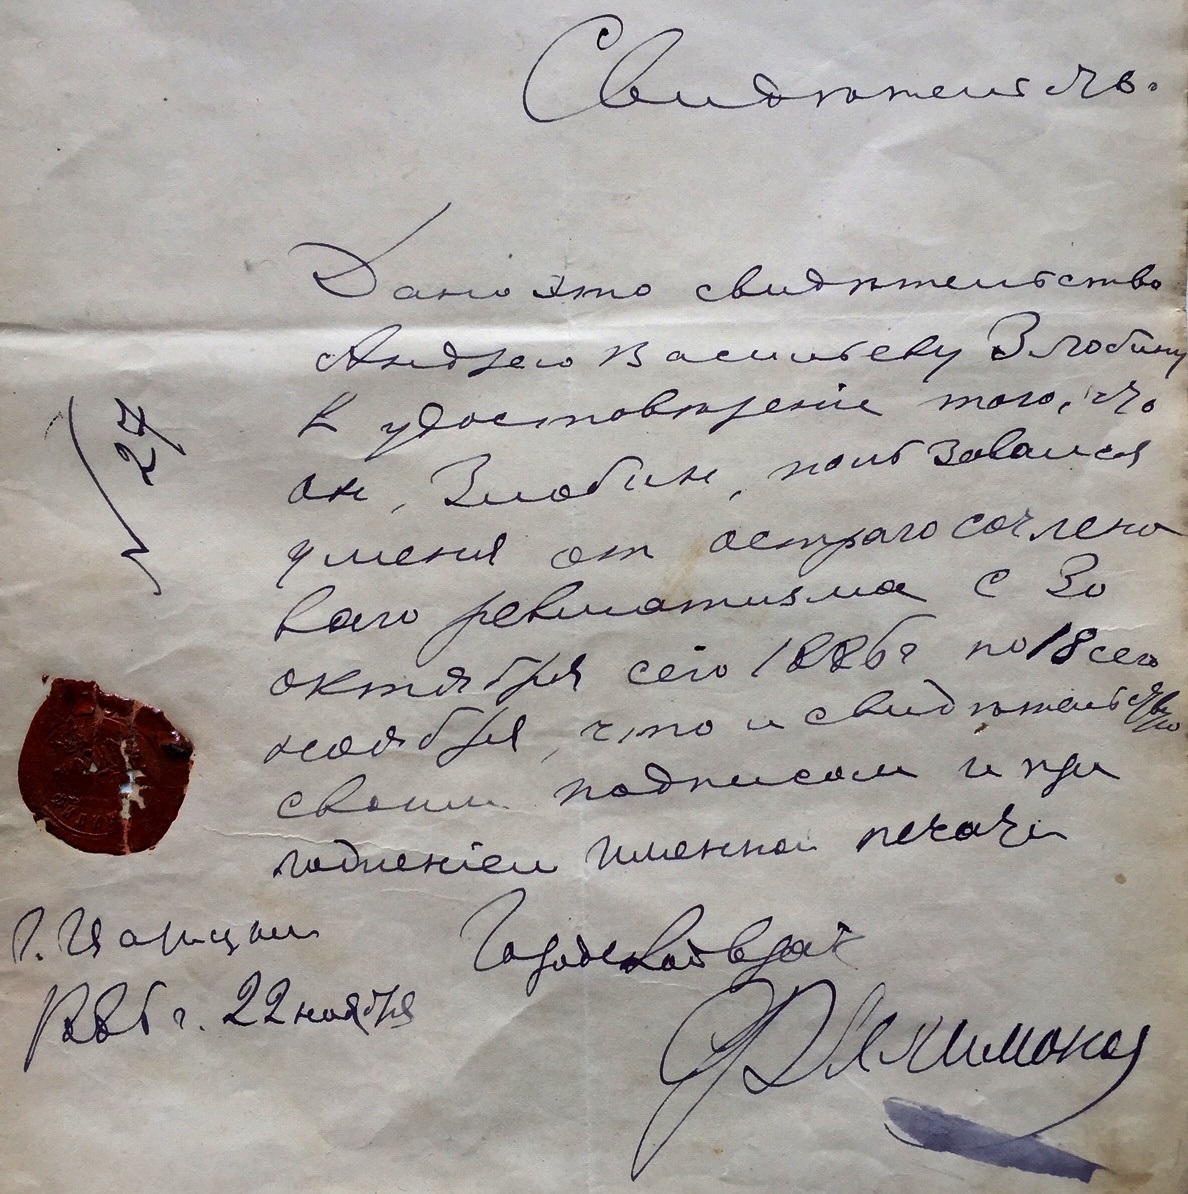 Свидѣтельство.
Дано это свидѣтельство
Андрею Васильеву Злобину
в удостовѣреніе того, что
он, Злобин, пользовался
у меня от остраго сочлено
ваго ревматизма с 30
октября сего 1886 г по 18 сего
ноября, что и свидѣтельствую
своим подписом и при
ложеніем именной печати
Городской врач
Филимонов
г. Царицын
1886 г. 22 ноября
№ 27